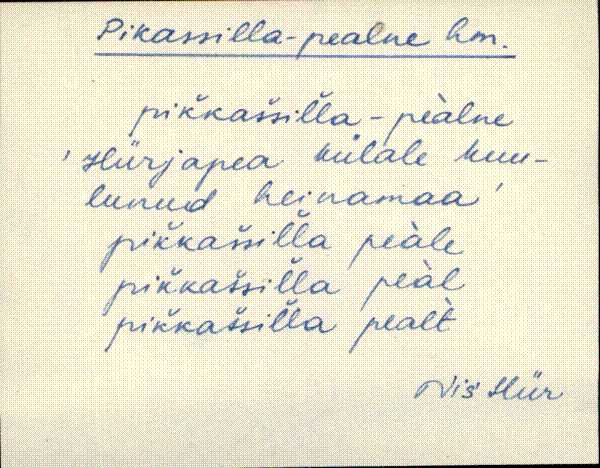 Pikassilla-pealne hm.
pikˇkašsilˇla-pèàlne
'Hürjapea külale kuu-
lunud heinamaa'
pikˇkašsilˇla peàle
pikˇkašsilˇla peàl
pikˇkašsilˇla pealt̀
Nis Hür